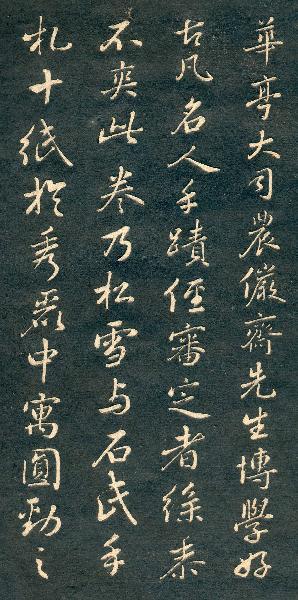 華亭大司農儼齋先生博學好
古凡名人手蹟經審定者絲黍
不爽此卷乃松雪与石民手
札十紙於秀麗中寓圓勁之